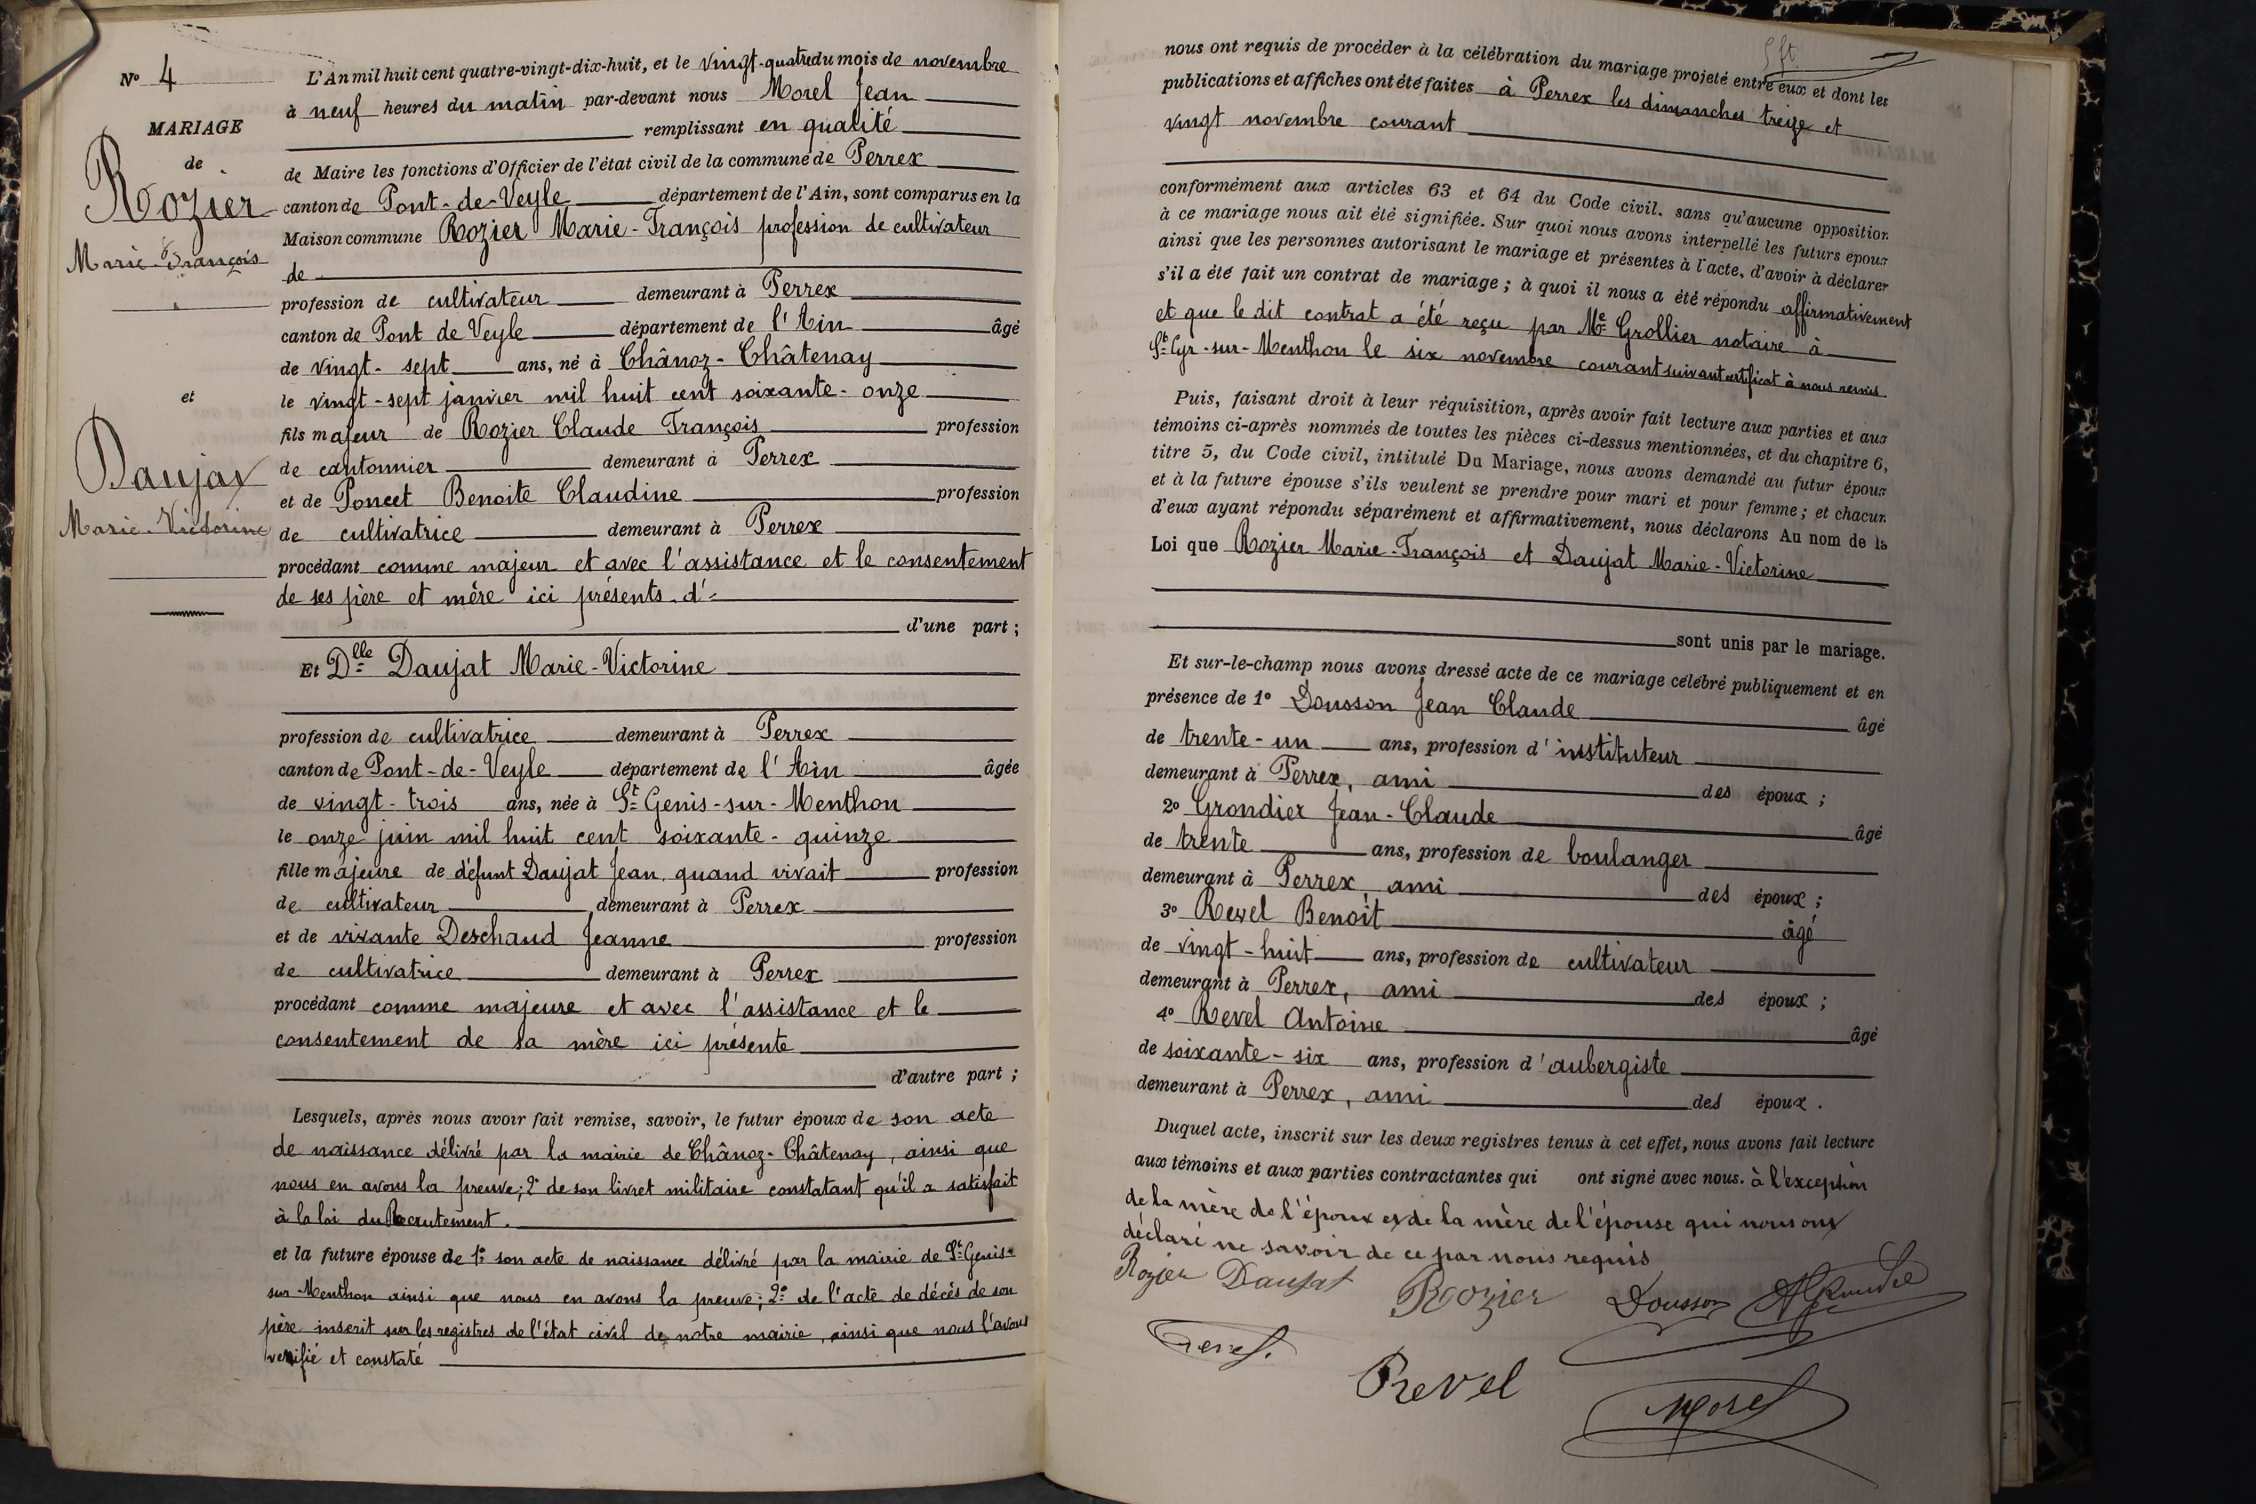 N° 4
MARIAGE
de
Rozier
Marie-François
et
Daujat
Marie-Victorine
L'An mil huit cent quatre-vingt-dix-huit, et le vingt-quatre du mois de novembre
à neuf heures du matin par-devant nous Morel Jean
remplissant en qualité
de Maire les fonctions d'Officier de l'état civil de la commune de Perrex
canton de Pont-de-Veyle département de l'Ain, sont comparus en la
Maison commune Rozier Marie-François profession de cultivateur
de
profession de cultivateur demeurant à Perrex
canton de Pont de Veyle département de l'Ain âgé
de vingt-sept ans, né à Chânoz-Châtenay
le vingt-sept janvier mil huit cent soixante-onze
fils majeur de Rozier Claude François profession
de cantonnier demeurant à Perrex
et de Poncet Benoite Claudine profession
de cultivatrice demeurant à Perrex
procédant comme majeur et avec l'assistance et le consentement
de ses père et mère ici présents d'
d'une part ;
Et Dlle Daujat Marie-Victorine
profession de cultivatrice demeurant à Perrex
canton de Pont-de-Veyle département de l'Ain âgée
de vingt-trois ans, née à St Genis-sur-Menthon
le onze juin mil huit cent soixante-quinze
fille majeure de défunt Daujat Jean quand vivait profession
de cultivateur demeurant à Perrex
et de vivante Deschaud Jeanne profession
de cultivatrice demeurant à Perrex
procédant comme majeure et avec l'assistance et le
consentement de sa mère ici présente
d'autre part ;
Lesquels, après nous avoir fait remise, savoir, le futur époux de son acte
de naissance délivré par la mairie de Chânoz-Châtenay, ainsi que
nous en avons la preuve; 2° de son livret militaire constatant qu'il a satisfait
à la loi du Recrutement.
et la future épouse de 1° son acte de naissance délivré par la mairie de St Genis-
sur-Menthon ainsi que nous en avons la preuve; 2° de l'acte de décès de son
père inscrit sur les registres de l'état civil de notre mairie, ainsi que nous l'avons
verifié et constaté
nous ont requis de procéder à la célébration du mariage projeté entre eux et dont les
publications et affiches ont été faites à Perrex les dimanches treize et
vingt novembre courant
conformément aux articles 63 et 64 du Code civil, sans qu'aucune opposition
à ce mariage nous ait été signifiée. Sur quoi nous avons interpellé les futurs époux
ainsi que les personnes autorisant le mariage et présentes à l'acte, d'avoir à déclarer
s'il a été fait un contrat de mariage ; à quoi il nous a été répondu affirmativement
et que le dit contrat a été reçu par Me Grollier notaire à
St Cyr-sur-Menthon le six novembre courant suivant certificat à nous remis
Puis, faisant droit à leur réquisition, après avoir fait lecture aux parties et aux
témoins ci-après nommés de toutes les pièces ci-dessus mentionnées, et du chapitre 6,
titre 5, du Code civil, intitulé Du Mariage, nous avons demandé au futur époux
et à la future épouse s'ils veulent se prendre pour mari et pour femme ; et chacun
d'eux ayant répondu séparément et affirmativement, nous déclarons Au nom de la
Loi que Rozier Marie-François et Daujat Marie-Victorine
sont unis par le mariage.
Et sur-le-champ nous avons dressé acte de ce mariage célébré publiquement et en
présence de 1° Dousson Jean Claude âgé
de trente-un ans, profession d'instituteur
demeurant à Perrex, ami des époux ;
2° Grondier Jean-Claude âgé
de trente ans, profession de boulanger
demeurant à Perrex, ami des époux ;
3° Revel Benoit âgé
de vingt-huit ans, profession de cultivateur
demeurant à Perrex, ami des époux ;
4° Revel Antoine âgé
de soixante-six ans, profession d'aubergiste
demeurant à Perrex, ami des époux.
Duquel acte, inscrit sur les deux registres tenus à cet effet, nous avons fait lecture
aux témoins et aux parties contractantes qui ont signé avec nous. à l'exception
de la mère de l'époux et de la mère de l'épouse qui nous ont
déclaré ne savoir de ce par nous requis
Rozier Daujat Rozier Dousson
Revel
Morel